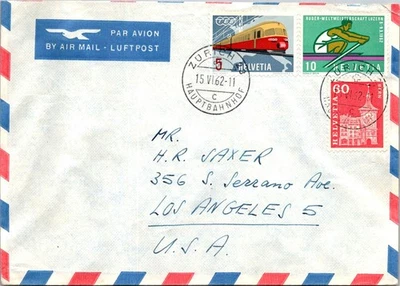 PAR AVION
BY AIR MAIL - LUFTPOST
5
HELVETIA
RUDER-WELTMEISTERSCHAFT LUZERN
10 HELVETIA
ZÜRICH
15.VI.62-11
C
HAUPTBAHNHOF
60
HELVETIA
MR.
H.R. SAXER
356 S. Serrano Ave.
LOS ANGELES 5
U.S.A.